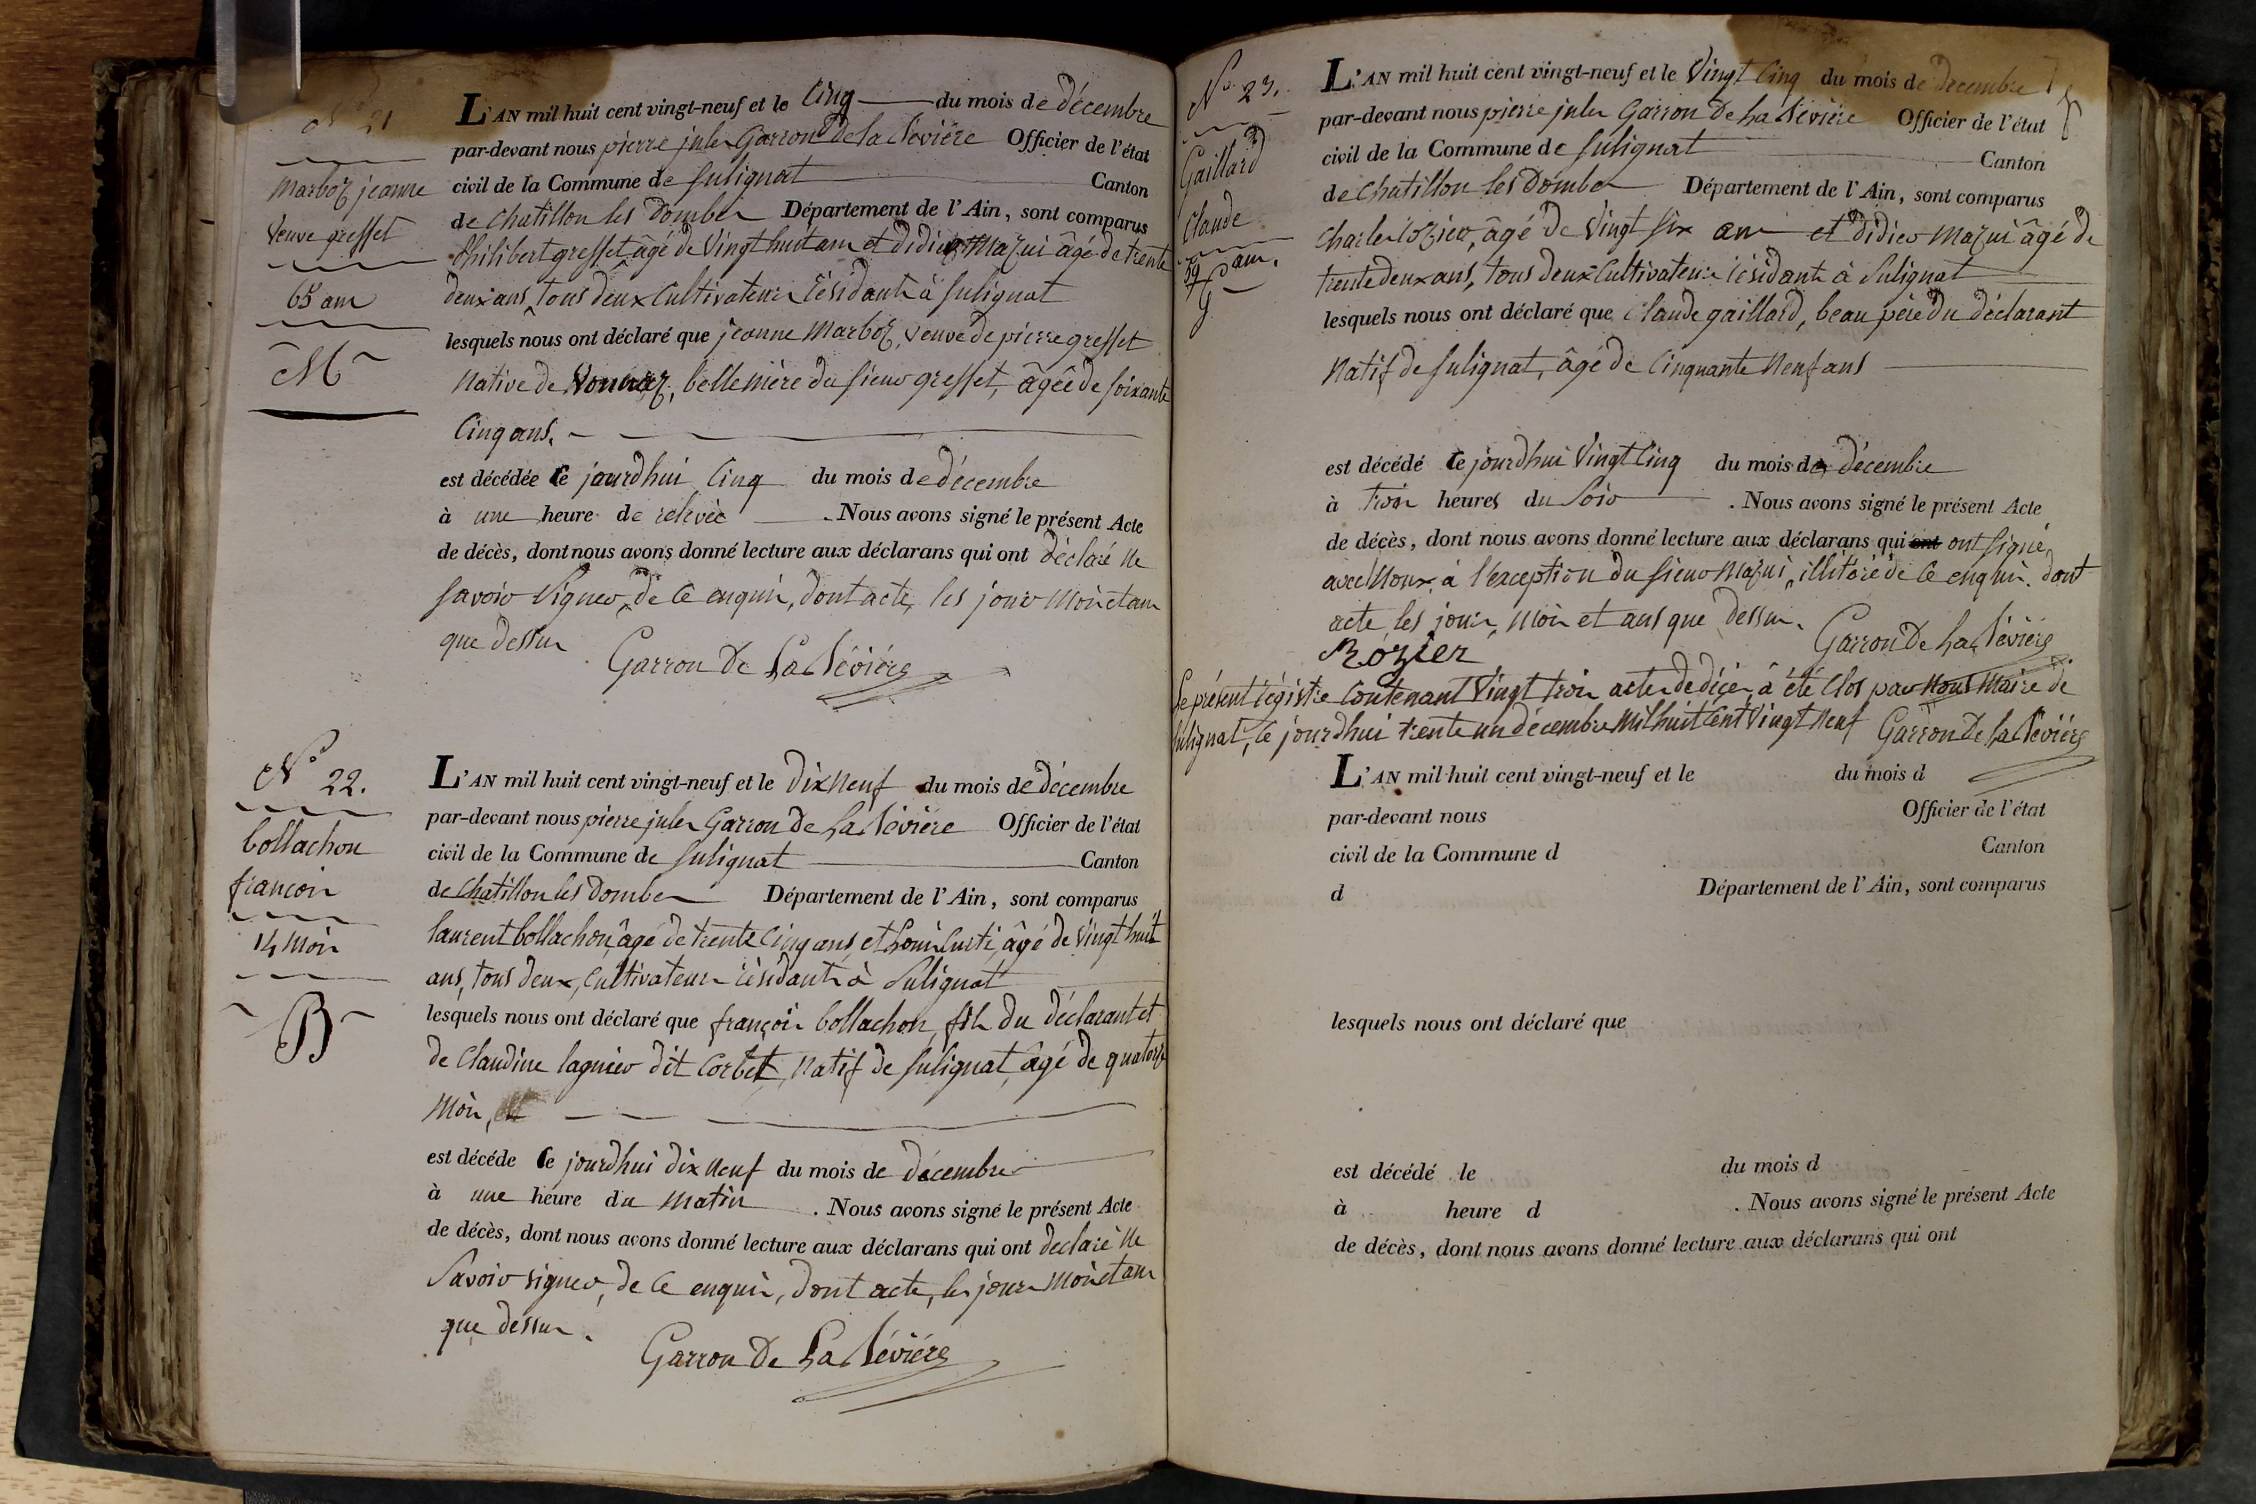 N° 21
Marboz jeanne
Veuve gresset
65 ans
M
L'AN mil huit cent vingt-neuf et le Cinq du mois de décembre
par-devant nous pierre jules Garron De la Bévière Officier de l'état
civil de la Commune de Sulignat Canton
de Chatillon les Dombes Département de l'Ain, sont comparus
Philibert gresset âgé de Vingt huit ans et Didier Mazui âgé de trente
deux ans, tous deux Cultivateurs résidants à Sulignat
lesquels nous ont déclaré que jeanne Marboz, Veuve de pierre gresset
Native de Vonnaz, belle mère du sieur gresset, âgée de soixante
Cinq ans.
est décédée Ce jourdhui Cinq du mois de décembre
à une heure de relevée . Nous avons signé le présent Acte
de décès, dont nous avons donné lecture aux déclarans qui ont déclaré Ne
savoir Signer, de Ce enquis, dont acte, les jour Mois et ans
que dessus
Garron De La Bévière
N° 22.
bollachon
françois
14 Mois
B
L'AN mil huit cent vingt-neuf et le Dix Neuf du mois de décembre
par-devant nous pierre jules Garron De La Bévière Officier de l'état
civil de la Commune de Sulignat Canton
de Chatillon les Dombes Département de l'Ain, sont comparus
laurent bollachon, âgé de trente Cinq ans, et Louis Curti, âgé de Vingt huit
ans, tous deux, Cultivateurs résidants à Sulignat
lesquels nous ont déclaré que françois bollachon, fils du déclarant et
de Claudine lagnier dit Corbet, Natif de Sulignat, âgé de quatorze
Mois,
est décéde Ce jourdhui dix Neuf du mois de décembre
à une heure du Matin . Nous avons signé le présent Acte
de décès, dont nous avons donné lecture aux déclarans qui ont declaré Ne
Savoir signer, de Ce enquis, dont acte, les jours Mois et ans
que dessus.
Garron De La Bévière
N° 23.
Gaillard
Claude
59 ans.
G
L'AN mil huit cent vingt-neuf et le Vingt Cinq du mois de decembre
par-devant nous pierre jules Garron De La Bévière Officier de l'état
civil de la Commune de Sulignat Canton
de Chatillon les Dombes Département de l'Ain, sont comparus
Charles rozier, âgé de Vingt Six ans et Didier Mazui âgé de
trente deux ans, tous deux Cultivateurs résidants à Sulignat
lesquels nous ont déclaré que Claude gaillard, beau père du déclarant
Natif de Sulignat, âgé de Cinquante Neuf ans
est décédé Ce jourdhui Vingt Cinq du mois de décembre
à trois heures du Soir . Nous avons signé le présent Acte
de décès, dont nous avons donné lecture aux déclarans qui ont ont Signé,
avec Nous, à l'exception du sieur Mazui, illitéré de Ce enquis. dont
acte, les jour, Mois et ans que dessus.
Rozier
Garron De La Bévière
Le présent registre Contenant Vingt trois actes de décès, à été Clos par Nous Maire de
Sulignat, Ce jourdhui trente un décembre Mil huit Cent Vingt Neuf Garron De La Bévière
L'AN mil huit cent vingt-neuf et le du mois d
par-devant nous Officier de l'état
civil de la Commune d Canton
d Département de l'Ain, sont comparus
lesquels nous ont déclaré que
est décédé le du mois d
à heure d . Nous avons signé le présent Acte
de décès, dont nous avons donné lecture aux déclarans qui ont